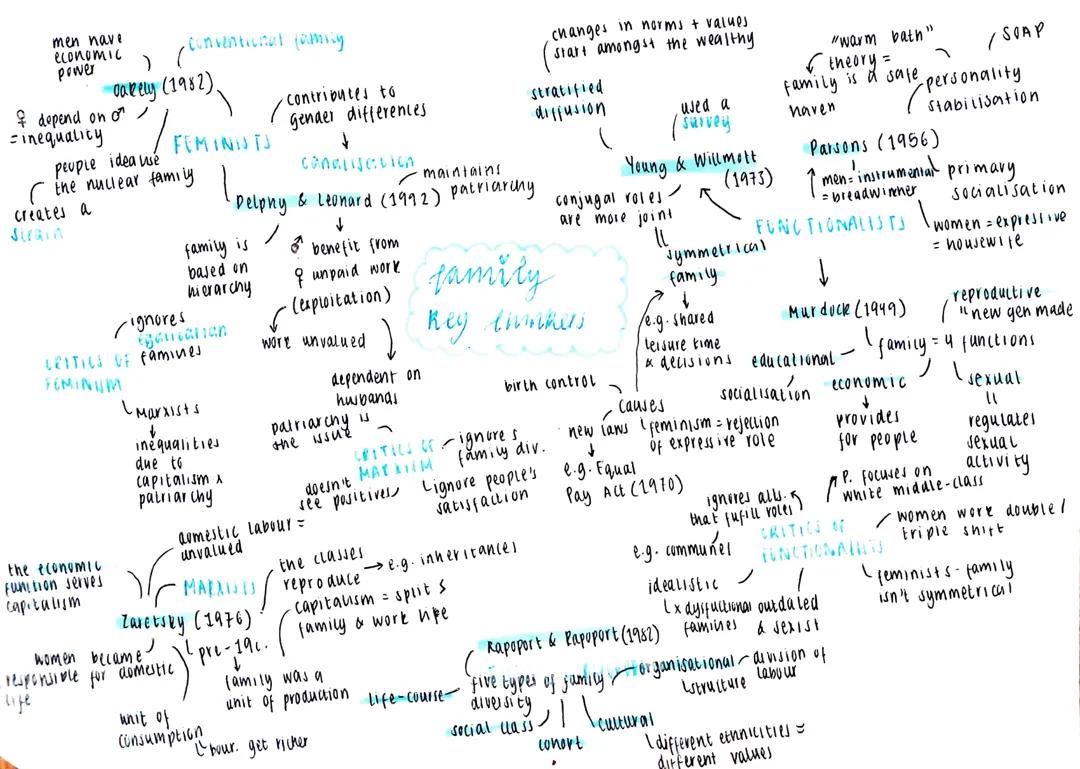 men have
economic
power
conventional family
Oakely (1982)
♀ depend on ♂
= inequality
people idealise
the nuclear family
creates a
strain
FEMINISTS
contributes to
gender differences
canalisation
Delphy & Leonard (1992)
maintains
patriarchy
family is
based on
hierarchy
♂ benefit from
♀ unpaid work
(exploitation)
work unvalued
dependent on
husbands
CRITICS OF
FEMINISM
ignores
egalitarian
families
Marxists
inequalities
due to
capitalism x
patriarchy
family
key thinkers
changes in norms + values
start amongst the wealthy
stratified
diffusion
used a
survey
Young & Willmott
(1973)
conjugal roles
are more joint
symmetrical
family
e.g. shared
leisure time
& decisions
causes
birth control
new laws
e.g. Equal
Pay Act (1970)
feminism = rejection
of expressive role
FUNCTIONALISTS
"warm bath"
theory =
family is a safe
haven
SOAP
personality
stabilisation
Parsons (1956)
men = instrumental
= breadwinner
primary
socialisation
women = expressive
= housewife
Murdock (1949)
family = 4 functions
reproductive
" new gen made
educational
socialisation
economic
provides
for people
sexual
"
regulates
sexual
activity
CRITICS OF
MARXISM
patriarchy is
the issue
doesn't
see positives
ignores
family div.
ignore people's
satisfaction
CRITICS OF
FUNCTIONALISTS
ignores alts.
that fulfill roles
e.g. communes
P. focuses on
white middle-class
women work double/
triple shift
feminists - family
isn't symmetrical
idealistic
x dysfuctional
families
outdated
& sexist
MARXISTS
Zaretsky (1976)
domestic labour =
unvalued
the economic
function serves
capitalism
women became
responsible for domestic
life
unit of
consumption
bour. get richer
pre-19c.
family was a
unit of production
the classes
reproduce
e.g. inheritances
capitalism = splits
family & work life
Rapoport & Rapoport (1982)
five types of family
diversity
life-course
social class
cohort
cultural
different ethnicities =
different values
organisational
structure
division of
labour